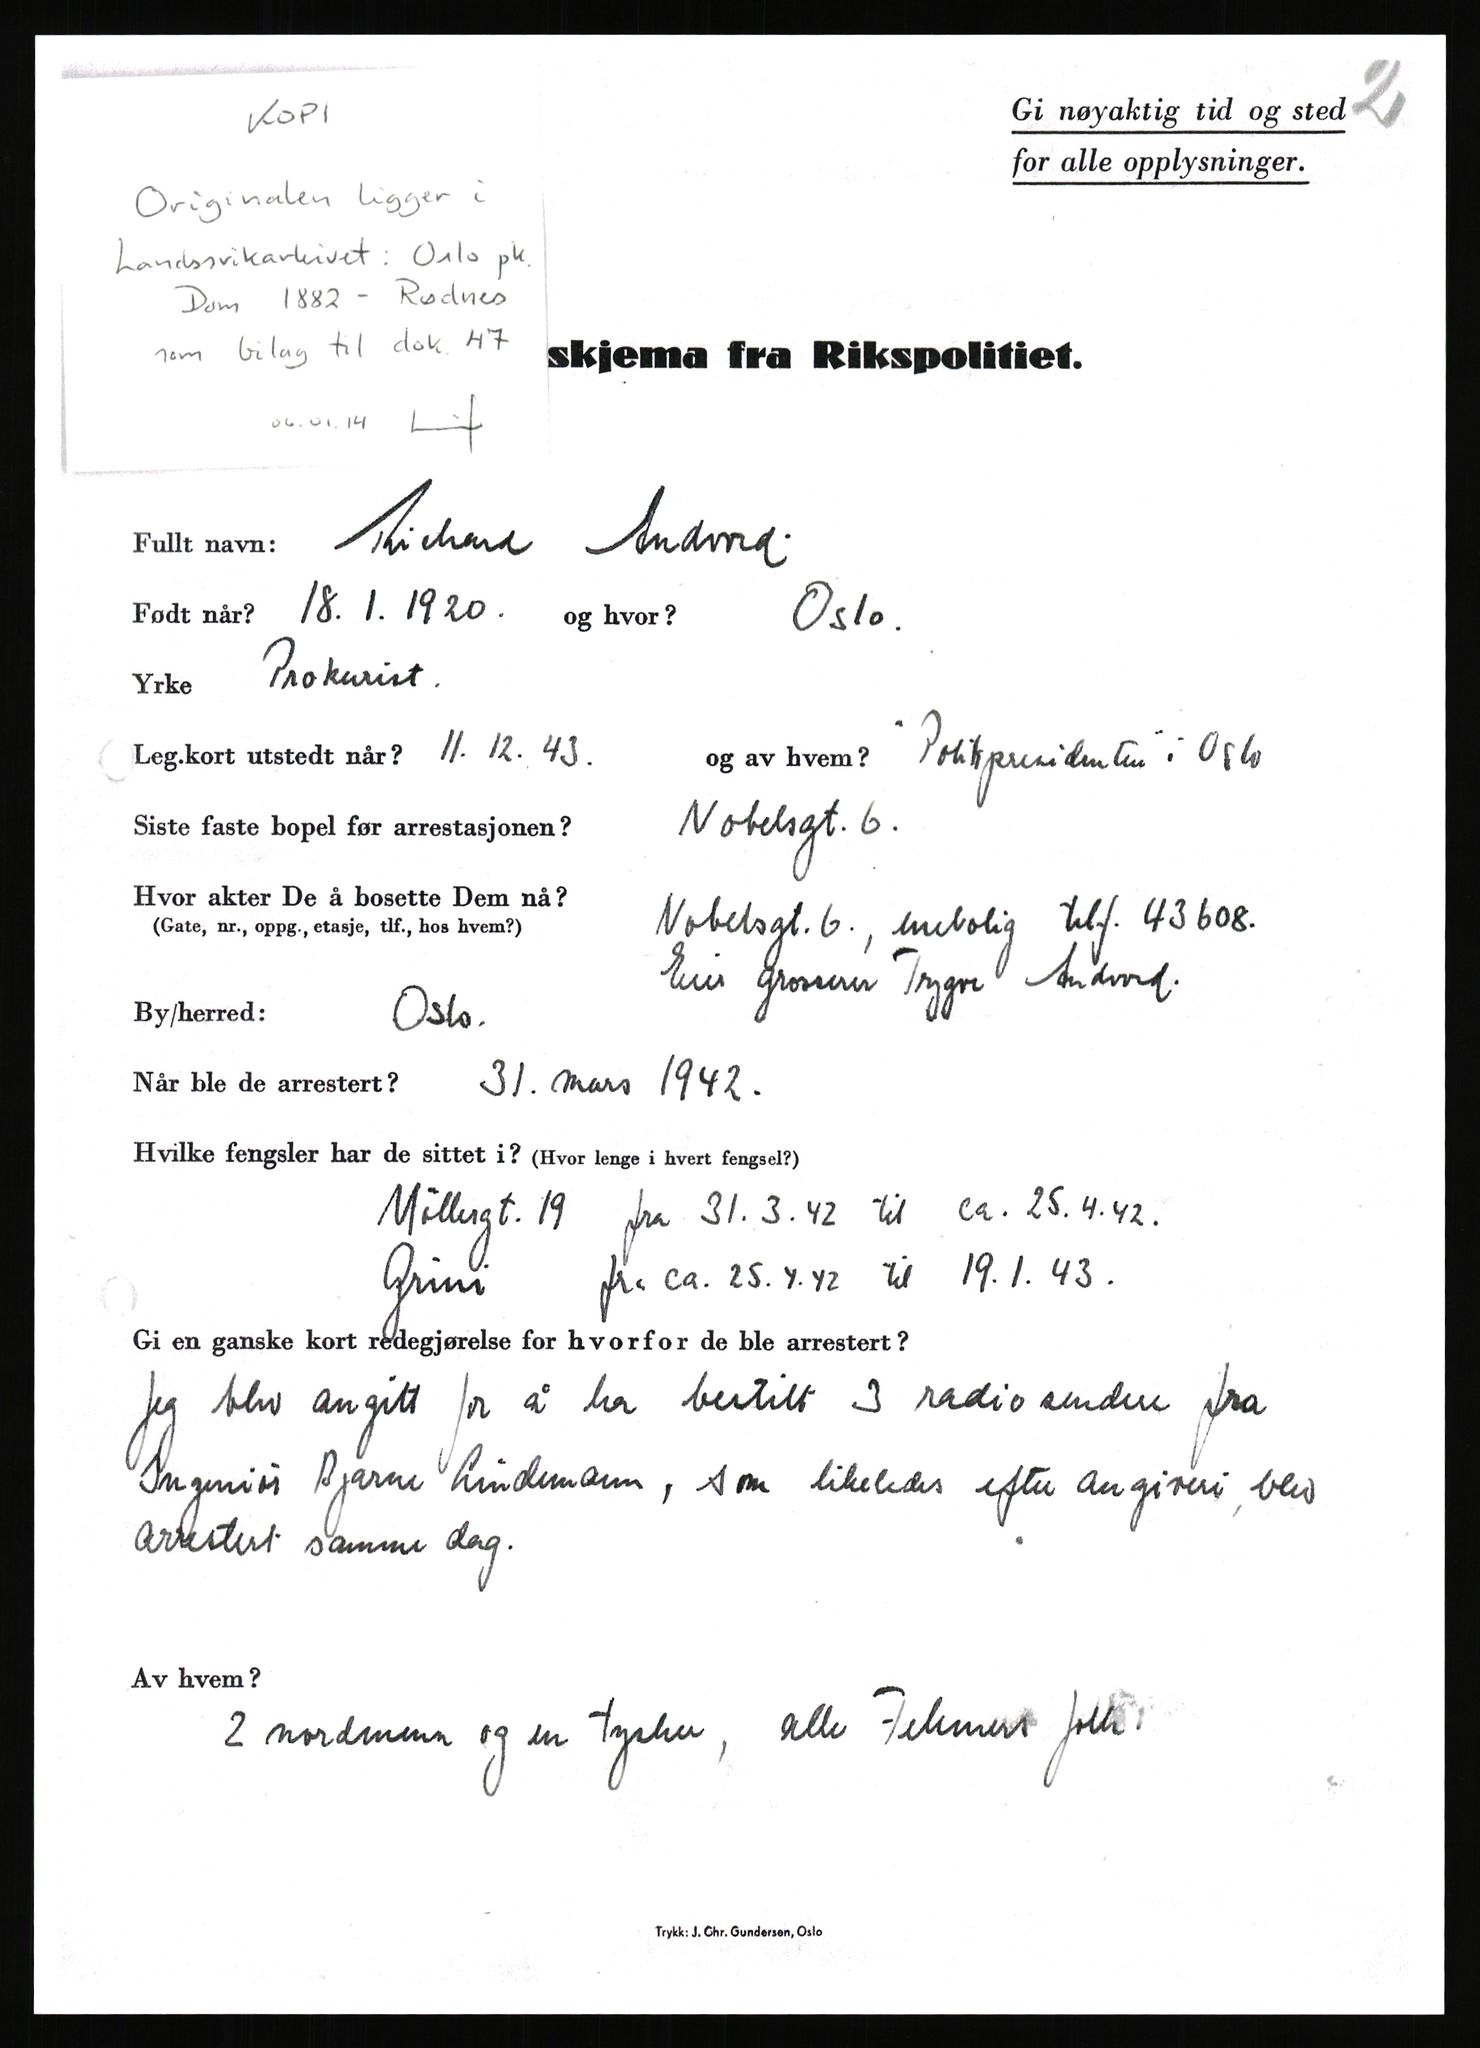 2
Gi nøyaktig tid og sted
for alle opplysninger.
KOPI
Originalen ligger i
Landssvikarkivet: Oslo pk.
Dom 1882 - Rødnes
som bilag til dok. 47
06.01.14
skjema fra Rikspolitiet.
Fullt navn: Richard Andvord.
Født når? 18. 1. 1920. og hvor? Oslo.
Yrke Prokurist.
Leg.kort utstedt når? 11. 12. 43. og av hvem? "Politipresidenten" i Oslo
Siste faste bopel før arrestasjonen? Nobelsgt. 6.
Hvor akter De å bosette Dem nå? Nobelsgt. 6., enebolig tlf. 43608.
(Gate, nr., oppg., etasje, tlf., hos hvem?) Eier grosserer Trygve Andvord.
By/herred: Oslo.
Når ble de arrestert? 31. mars 1942.
Hvilke fengsler har de sittet i? (Hvor lenge i hvert fengsel?)
Möllergt. 19 fra 31. 3. 42 til ca. 25. 4. 42.
Grini fra ca. 25. 4. 42 til 19. 1. 43.
Gi en ganske kort redegjørelse for hvorfor de ble arrestert?
Jeg blev angitt for å ha bestilt 3 radiosendere fra
Ingeniör Bjarne Lindemann, som likeledes efter angiveri, blev
arrestert samme dag.
Av hvem?
2 nordmenn og en tysker, alle Fehmers folk.
Trykk: J. Chr. Gundersen, Oslo